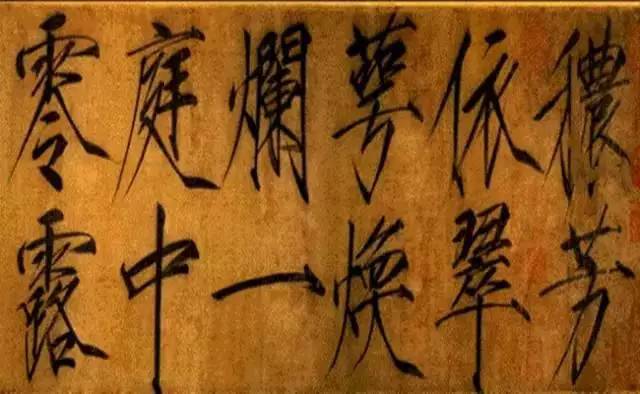 穠芳
依翠
萼煥
爛一
庭中
零露